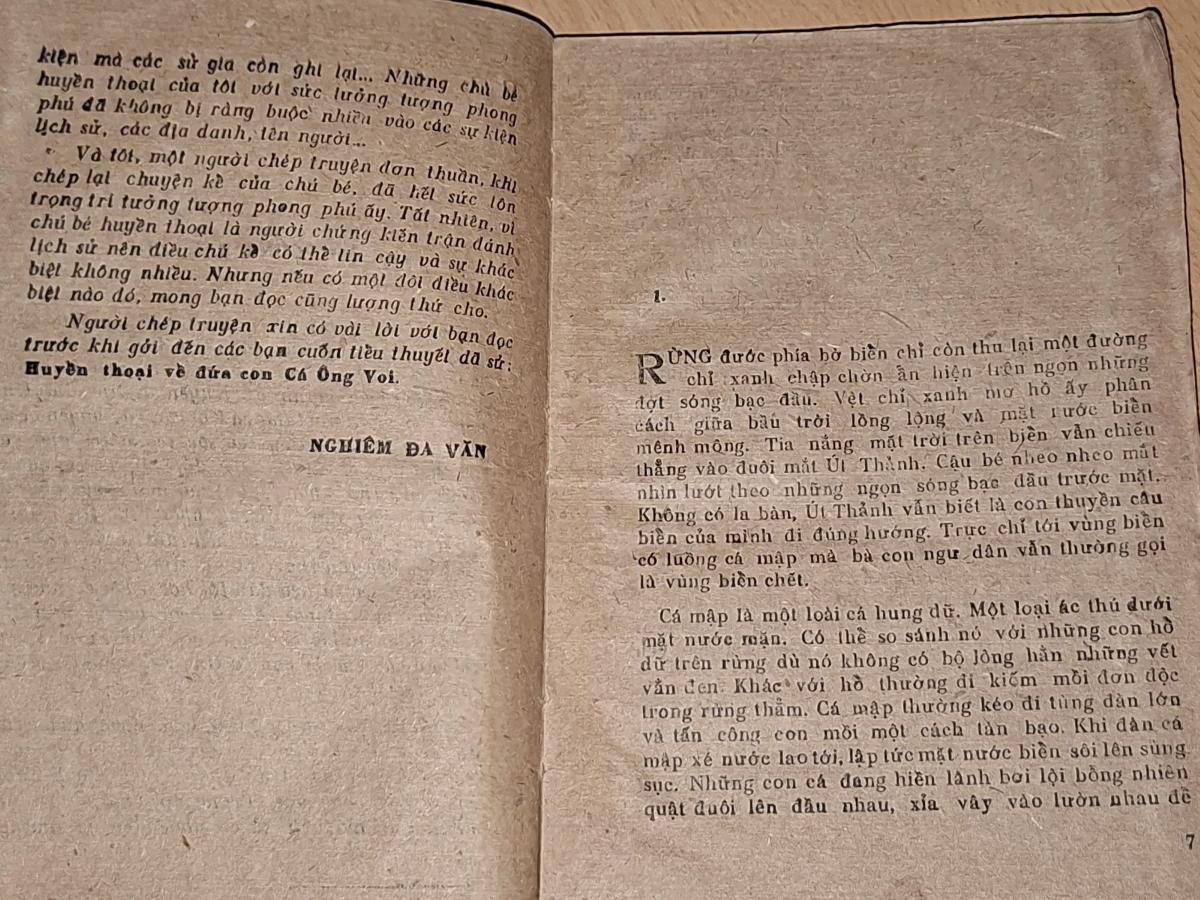 kiện mà các sử gia còn ghi lại... Những chú bé
huyền thoại của tôi với sức tưởng tượng phong
phú đã không bị ràng buộc nhiều vào các sự kiện
lịch sử, các địa danh, tên người...
Và tôi, một người chép truyện đơn thuần, khi
chép lại chuyện kể của chú bé, đã hết sức tôn
trọng trí tưởng tượng phong phú ấy. Tất nhiên, vì
chú bé huyền thoại là người chứng kiến trận đánh
lịch sử nên điều chú kể có thể tin cậy và sự khác
biệt không nhiều. Nhưng nếu có một đôi điều khác
biệt nào đó, mong bạn đọc cũng lượng thứ cho.
Người chép truyện xin có vài lời với bạn đọc
trước khi gởi đến các bạn cuốn tiểu thuyết dã sử:
Huyền thoại về đứa con Cá Ông Voi.
NGHIÊM ĐA VĂN
1.
RỪNG đước phía bờ biển chỉ còn thu lại một đường
chỉ xanh chập chờn ẩn hiện trên ngọn những
đợt sóng bạc đầu. Vệt chỉ xanh mơ hồ ấy phân
cách giữa bầu trời lồng lộng và mặt nước biển
mênh mông. Tia nắng mặt trời trên biển vẫn chiếu
thẳng vào đuôi mắt Út Thảnh. Cậu bé nheo nheo mắt
nhìn lướt theo những ngọn sóng bạc đầu trước mặt.
Không có la bàn, Út Thảnh vẫn biết là con thuyền câu
biển của mình đi đúng hướng. Trực chỉ tới vùng biển
có luồng cá mập mà bà con ngư dân vẫn thường gọi
là vùng biển chết.
Cá mập là một loài cá hung dữ. Một loại ác thú dưới
mặt nước mặn. Có thể so sánh nó với những con hổ
dữ trên rừng dù nó không có bộ lông hằn những vết
vằn đen. Khác với hổ thường đi kiếm mồi đơn độc
trong rừng thẳm. Cá mập thường kéo đi từng đàn lớn
và tấn công con mồi một cách tàn bạo. Khi đàn cá
mập xé nước lao tới, lập tức mặt nước biển sôi lên sùng
sục. Những con cá đang hiền lành bơi lội bỗng nhiên
quật đuôi lên đầu nhau, xỉa vây vào lườn nhau để
7